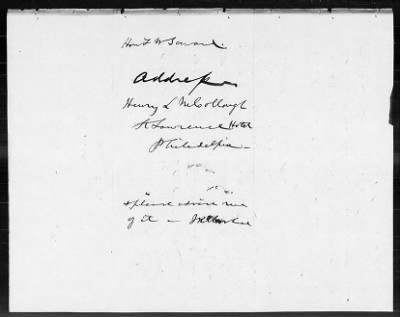 Hon F W Seward
Address
Henry L McCollough
St Lawrence Hotel
Philadelphia
& please advise me
of it —